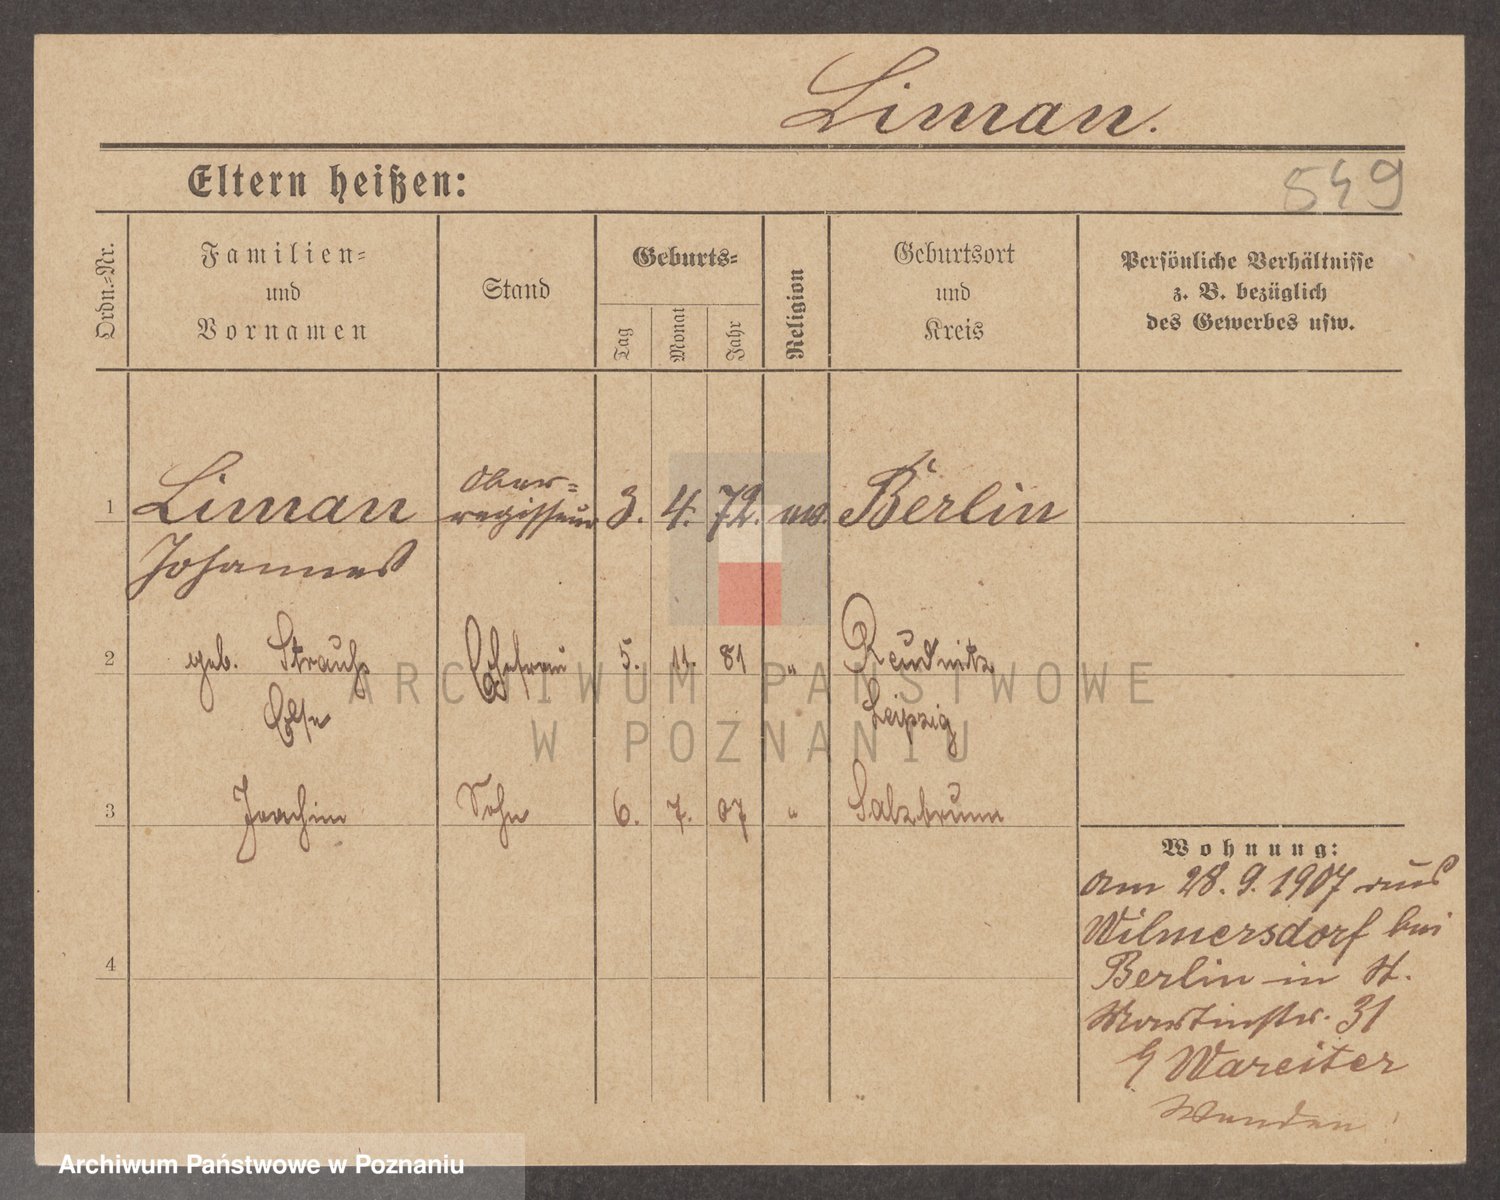 Liman.
Eltern heißen:
549
Ordn.=Nr.
Familien=
und
Vornamen
Stand
Geburts=
Tag
Monat
Jahr
Religion
Geburtsort
und
Kreis
Persönliche Verhältnisse
z. B. bezüglich
des Gewerbes usw.
Ober=
1 Liman regisseur 3. 4. 72. ev. Berlin
Johannes
2 geb. Strauß Ehefrau 5. 11. 81 " Reudnitz
Else Leipzig
3 Joachim Sohn 6. 7. 07 " Salzbrunn
4
Wohnung:
am 28. 9. 1907 aus
Wilmersdorf bei
Berlin in St.
Martinstr. 31
Wareiter
ARCHIWUM PAŃSTWOWE
W POZNANIU
Archiwum Państwowe w Poznaniu